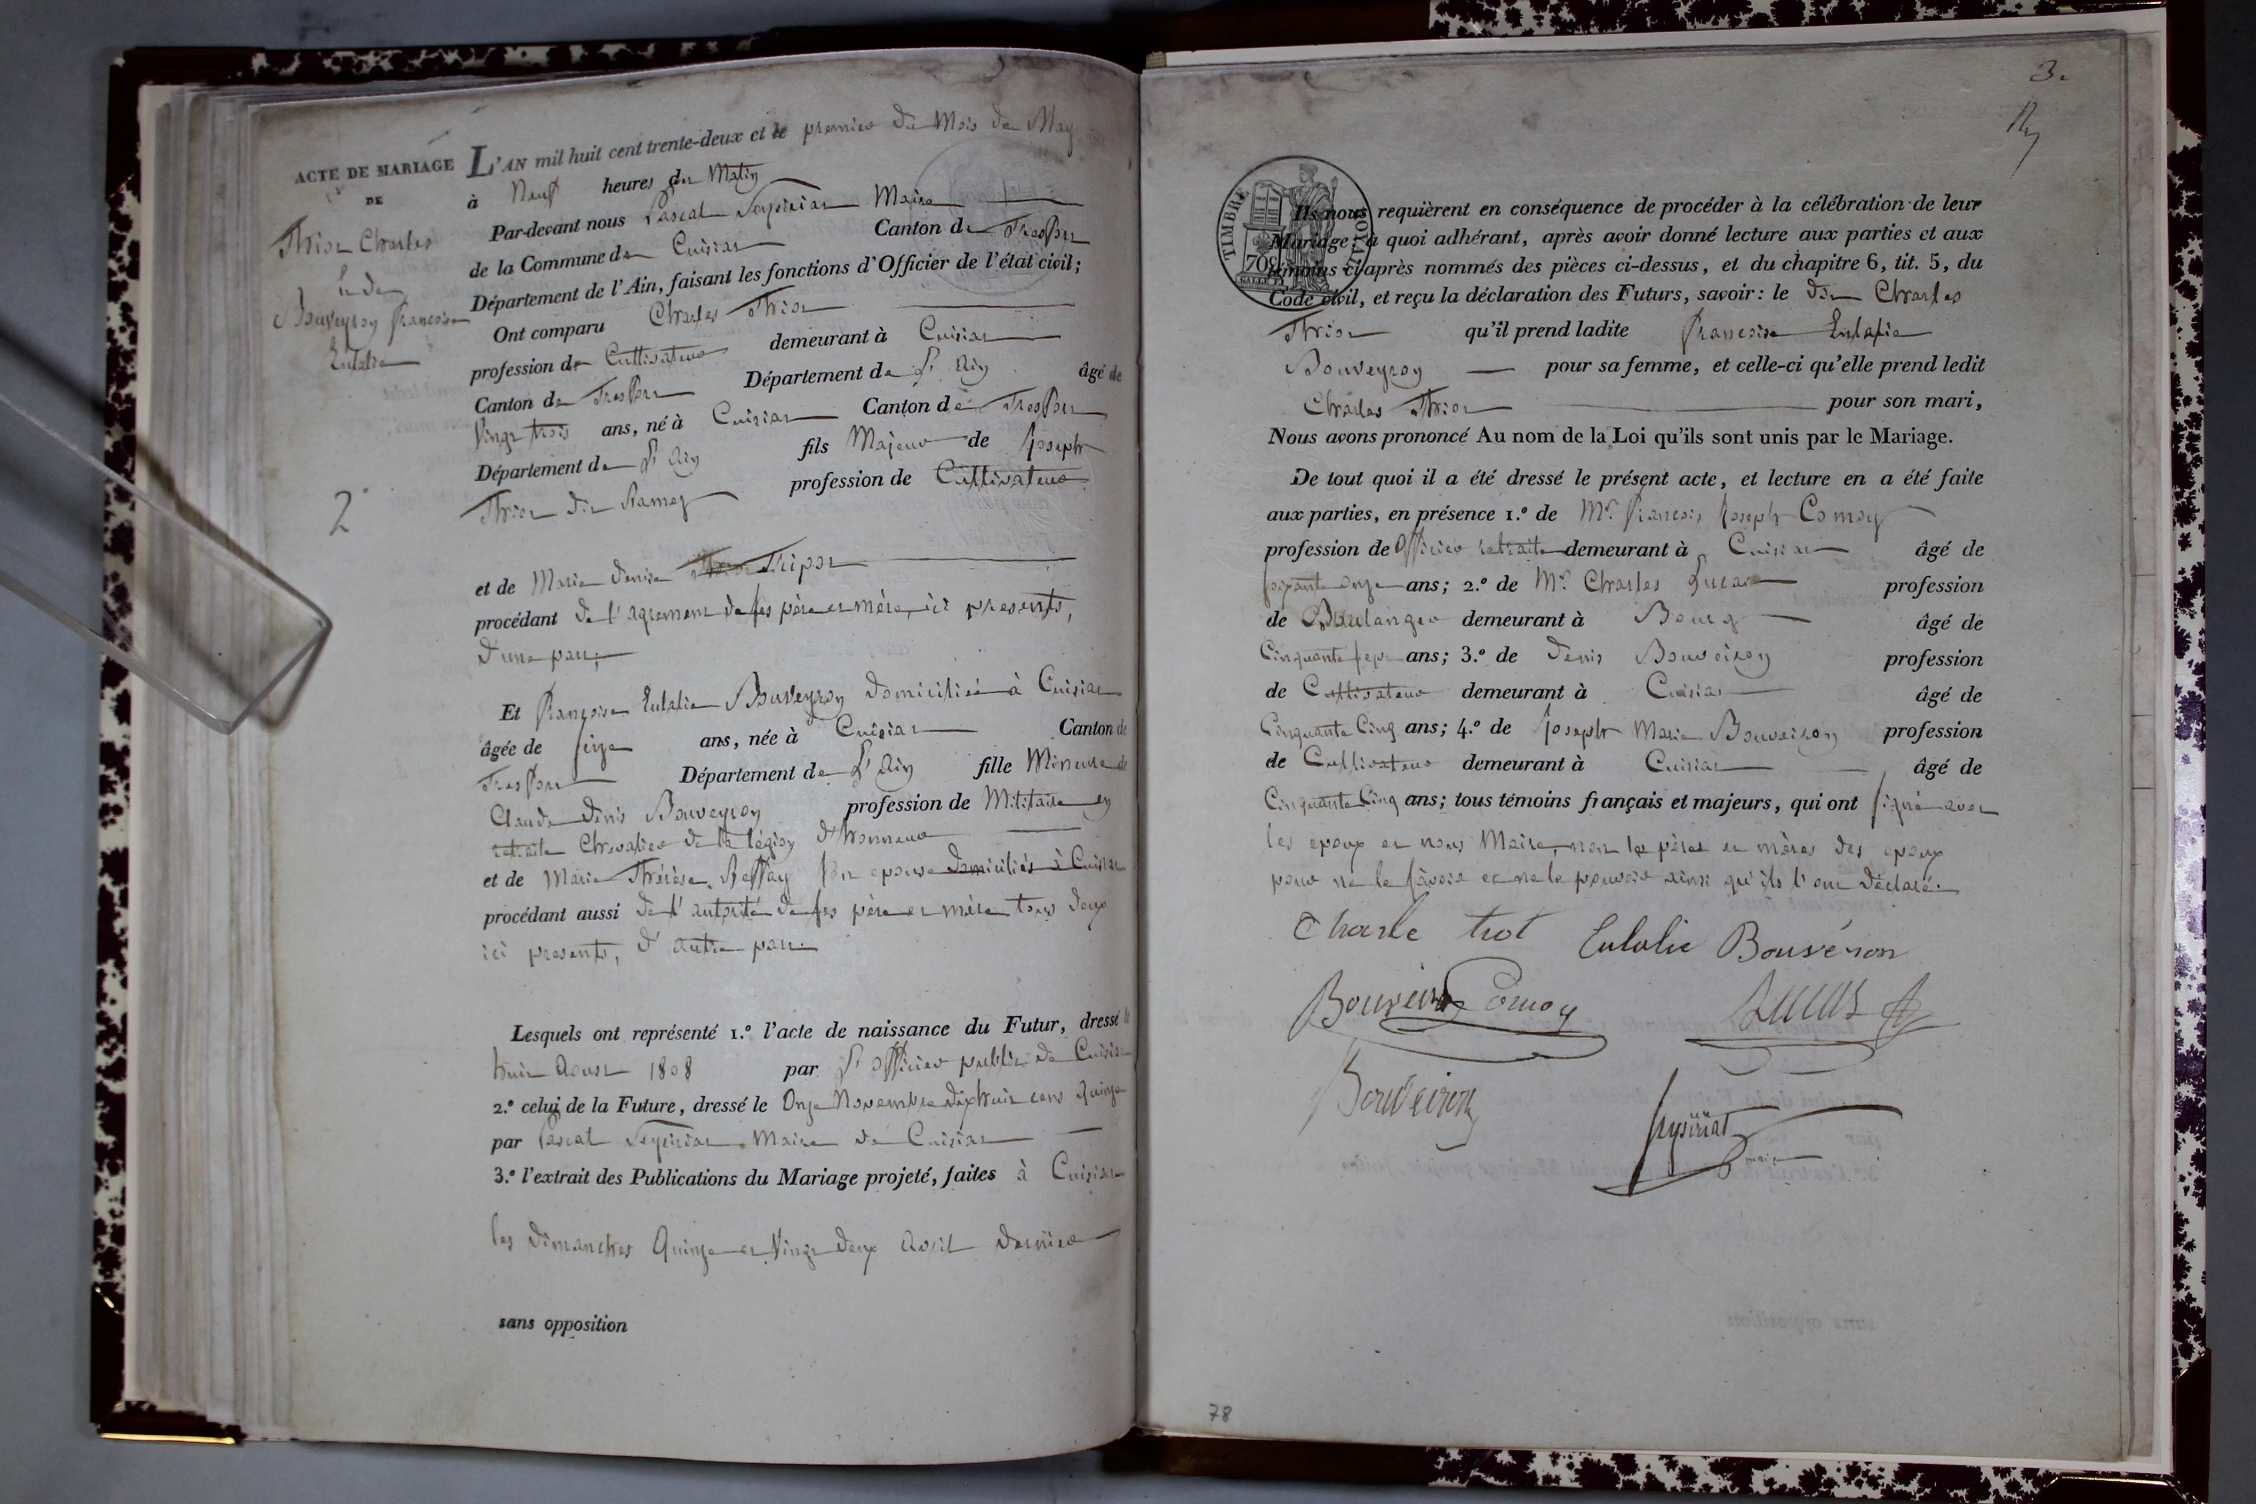 ACTE DE MARIAGE
DE
Thiot Charles
Et de
Bouveyron françoise
Eulalie
2.
L'AN mil huit cent trente-deux et le premier du Mois de May
à Neuf heures du Matin
Par-devant nous Pascal Seyssiriat Maire
de la Commune de Cuisiat Canton de Treffort
Département de l'Ain, faisant les fonctions d'Officier de l'état civil;
Ont comparu Charles Thiot
profession de Cultivateur demeurant à Cuisiat
Canton de Treffort Département de L'Ain âgé de
Vingt trois ans, né à Cuisiat Canton de Treffort
Département de L'Ain fils Majeur de Joseph
Thiot dit Ramey profession de Cultivateur
et de Marie denise Tripoz
procédant de l'agrement de ses père et mère, ici presents,
d'une part;
Et françoise Eulalie Bouveyron domiciliée à Cuisiat
âgée de seize ans, née à Cuisiat Canton de
Treffort Département de L'Ain fille Mineure de
Claude denis Bouveyron profession de Militaire en
retraite Chevalier de la légion d'honneur
et de Marie Thérèse Reffay son epouse domiciliés à Cuisiat
procédant aussi de l'autorité de ses père et mère tous deux
ici presents, d'autre part.
Lesquels ont représenté 1.º l'acte de naissance du Futur, dressé le
huit Aoust 1808 par L'officier public de Cuisiat
2.º celui de la Future, dressé le Onze Novembre dixhuit cent quinze
par Pascal Seyssiriat Maire de Cuisiat
3.º l'extrait des Publications du Mariage projeté, faites à Cuisiat
les dimanches Quinze et Vingt deux Avril dernier
sans opposition
3.
TIMBRE ROYAL
70c
Ils nous requièrent en conséquence de procéder à la célébration de leur
Mariage; à quoi adhérant, après avoir donné lecture aux parties et aux
témoins ci-après nommés des pièces ci-dessus, et du chapitre 6, tit. 5, du
Code civil, et reçu la déclaration des Futurs, savoir: le dit Charles
Thiot qu'il prend ladite françoise Eulalie
Bouveyron pour sa femme, et celle-ci qu'elle prend ledit
Charles Thiot pour son mari,
Nous avons prononcé Au nom de la Loi qu'ils sont unis par le Mariage.
De tout quoi il a été dressé le présent acte, et lecture en a été faite
aux parties, en présence 1.º de Mr. françois Joseph Comoy
profession de Officier retraité demeurant à Cuisiat âgé de
soixante onze ans; 2.º de Mr. Charles Lucas profession
de Boulanger demeurant à Bourg âgé de
Cinquante sept ans; 3.º de denis Bouveiron profession
de Cultivateur demeurant à Cuisiat âgé de
Cinquante Cinq ans; 4.º de Joseph Marie Bouveiron profession
de Cultivateur demeurant à Cuisiat âgé de
Cinquante Cinq ans; tous témoins français et majeurs, qui ont signé avec
les epoux et nous Maire, non les pères et mères des epoux
pour ne le savoir et ne le pouvoir ainsi qu'ils l'ont déclaré.
Charle tiot Eulalie Bouvéron
Bouveiron Comoy Lucas
Bouveiron
Seysiriat
maire
78